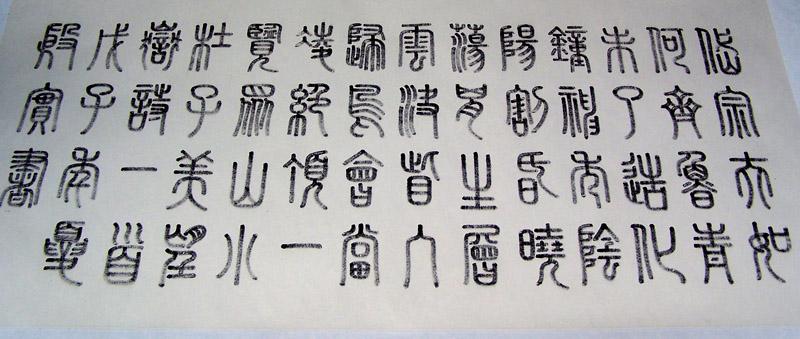 岱宗夫如
何齊魯青
未了造化
鐘神秀陰
陽割昏曉
蕩胸生層
雲決眥入
歸鳥會當
凌絕頂一
覽眾山小
杜子美望
嶽詩一首
戊子年夏
殷實書